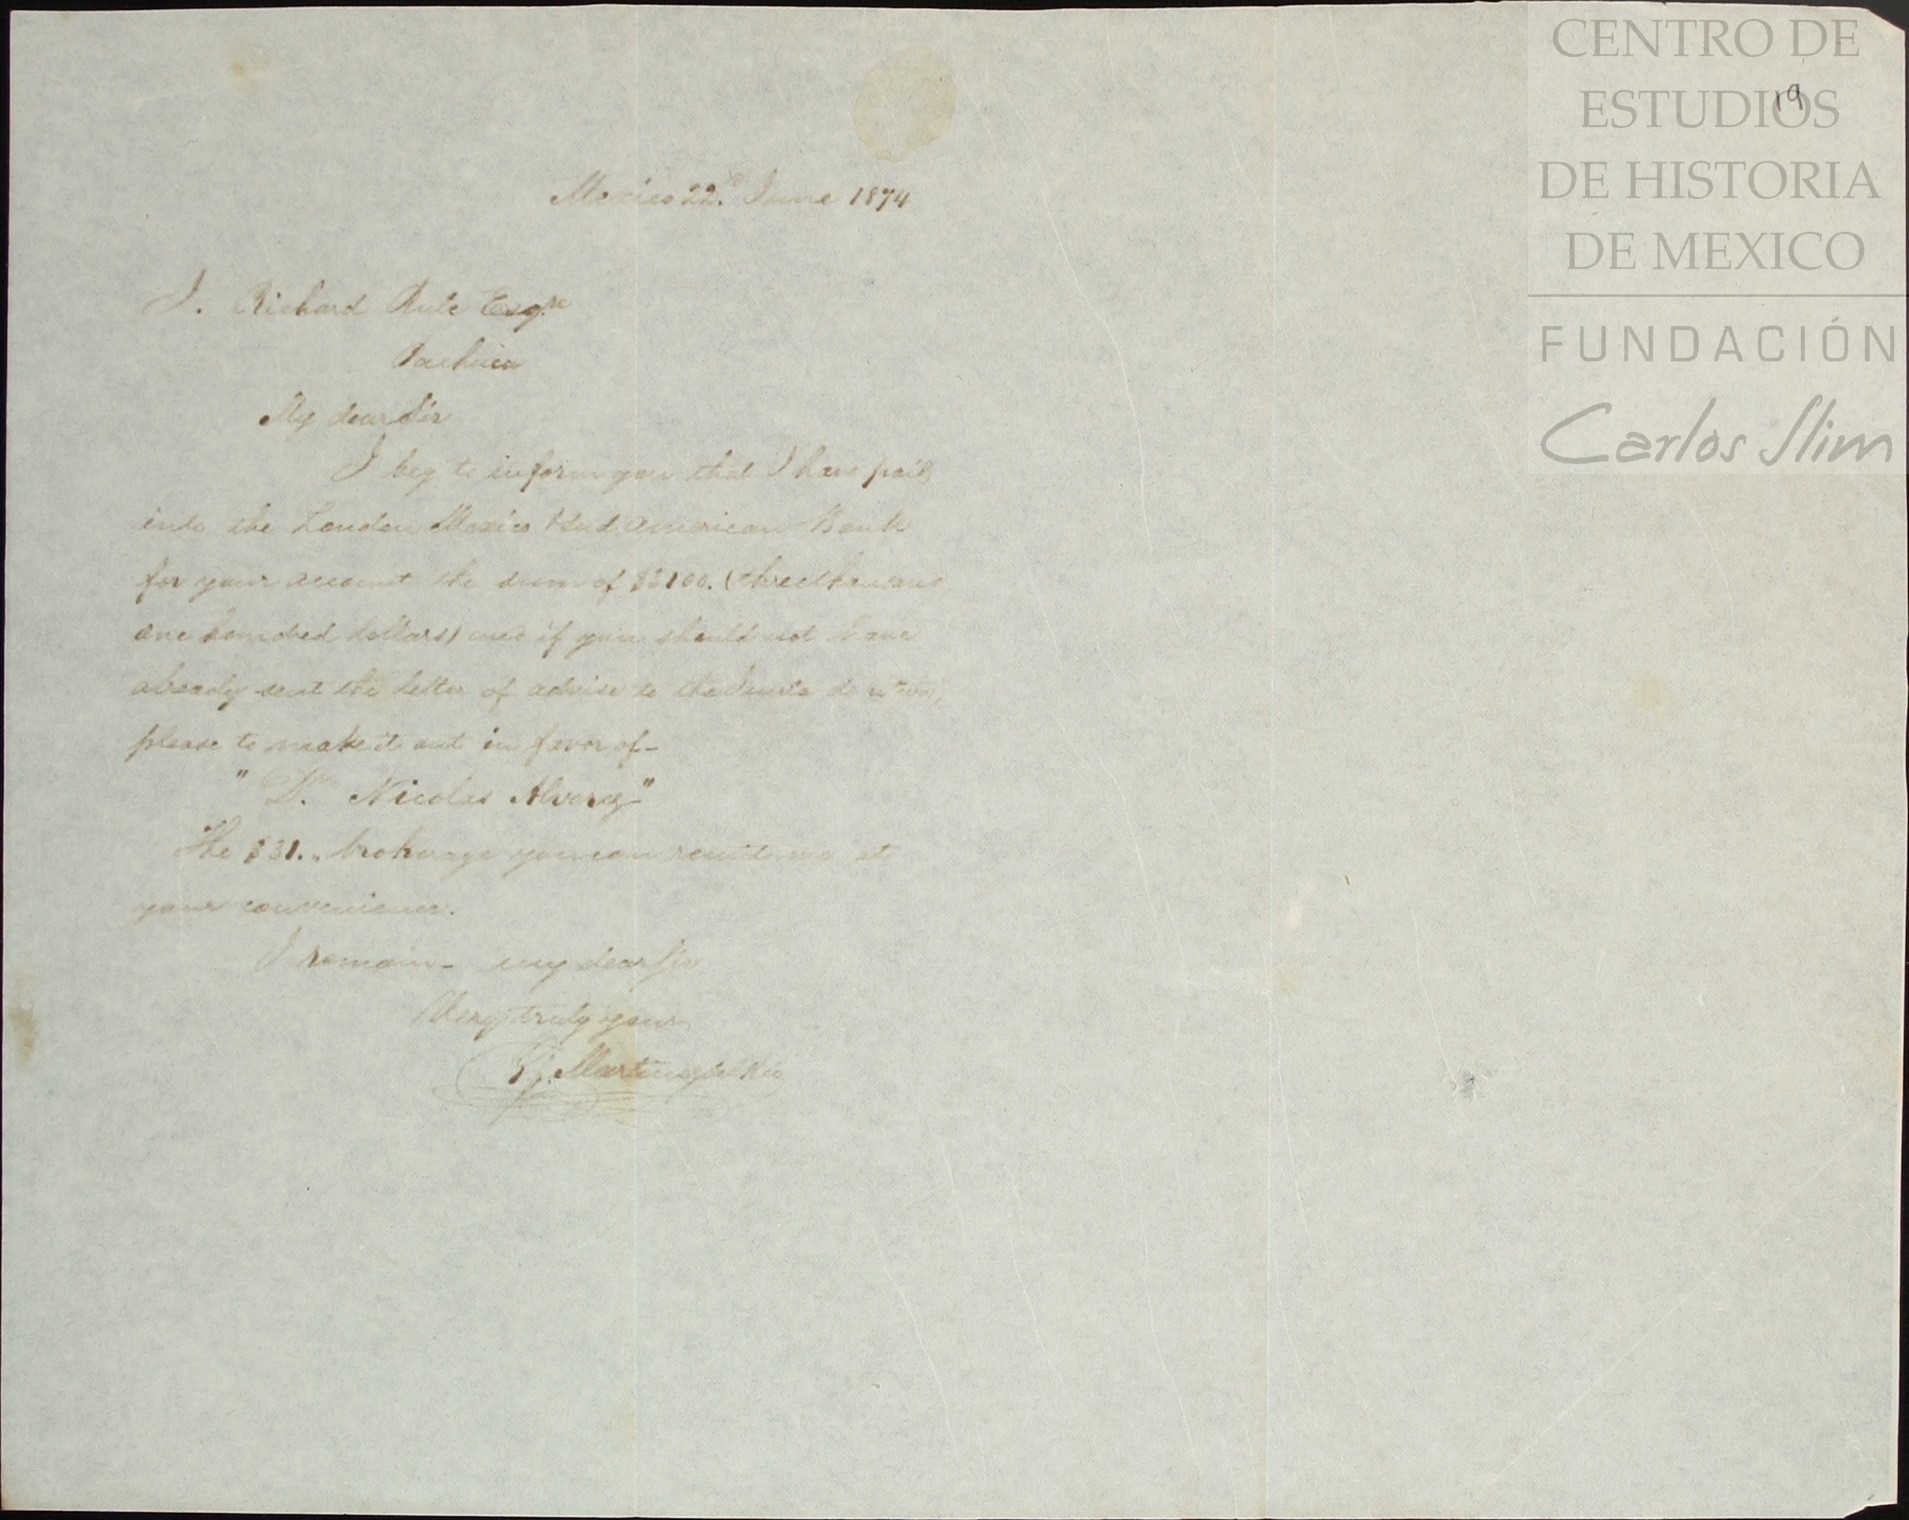 CENTRO DE
ESTUDIOS
DE HISTORIA
DE MEXICO
FUNDACIÓN
Carlos Slim
19
Mexico 22. June 1874
J. Richard Rule Esqre
Pachuca
My dear Sir
I beg to inform you that I have paid
into the London Mexico & Sud american Bank
for your account the sum of $3100. (three thousand
one hundred dollars) and if you should not have
already sent the letter of advise to the
please to make it out in favor of-
"Dn. Nicolas Alvarez"
The $31.. brokerage you can remit me at
your convenience.
I remain - my dear Sir
Very truly yours
Martinez del Rio